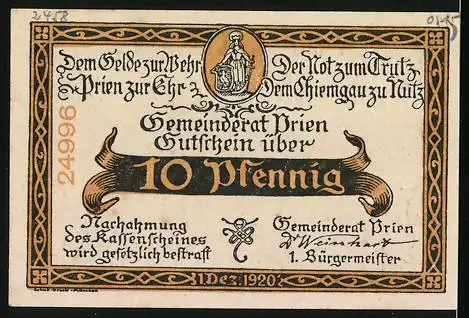 2458
Dem Gelde zur Wehr
Prien zur Ehr
Der Not zum Trutz
Dem Chiemgau zu Nutz
24996
Gemeinderat Prien
Gutschein über
10 Pfennig
Nachahmung
des Kassenscheines
wird gesetzlich bestraft
Gemeinderat Prien
Dr Weinhart
1. Bürgermeister
1. Dez. 1920